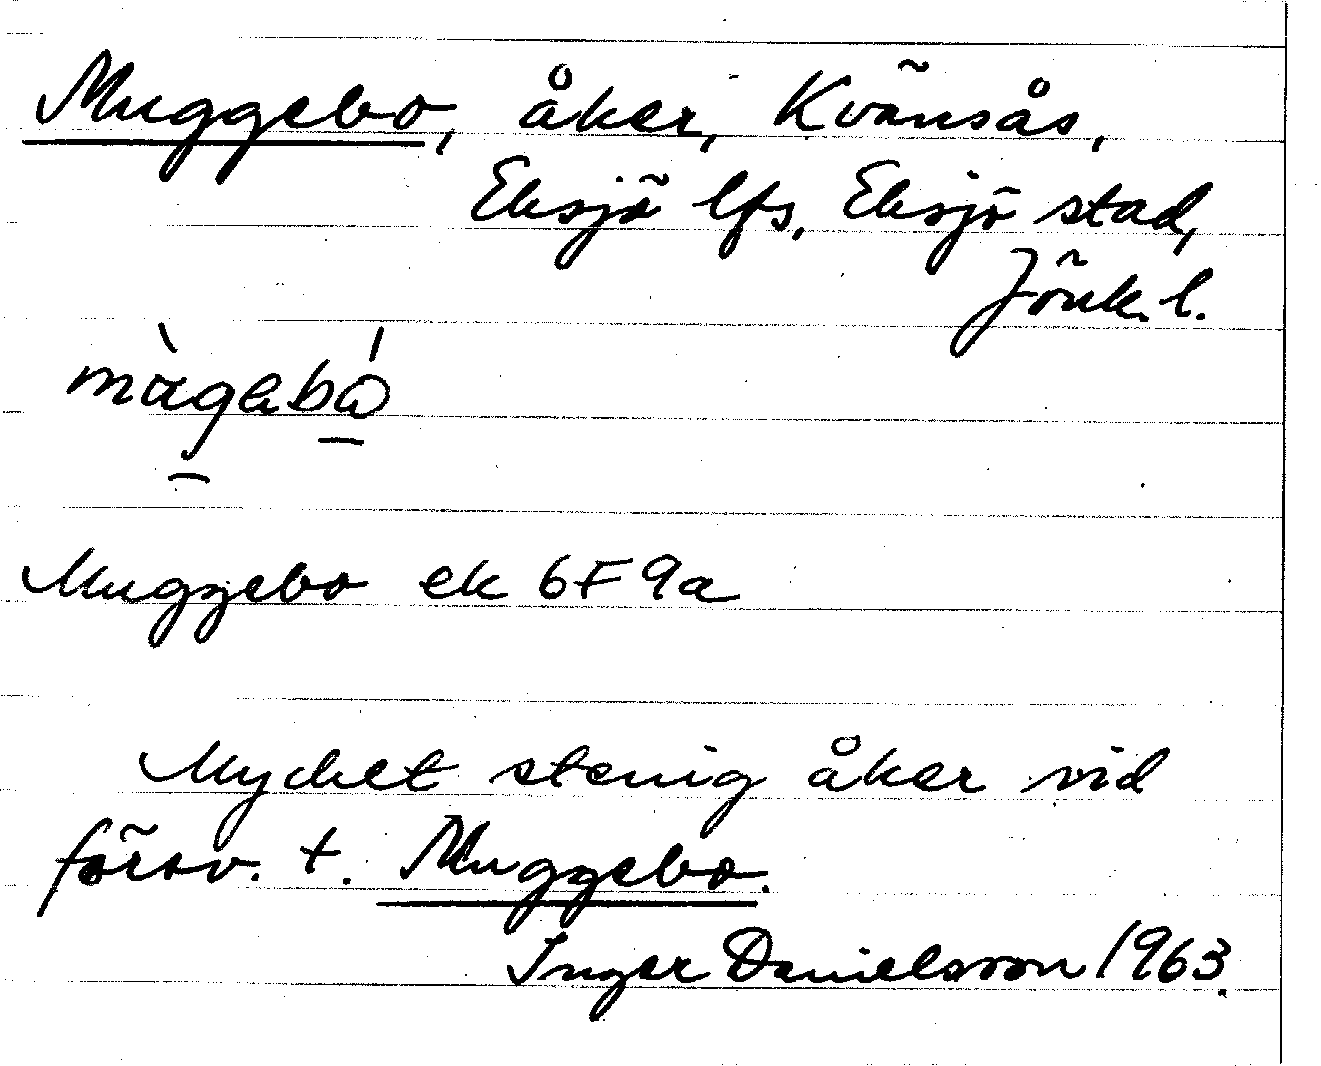 Muggebo, åker, Kvänsås,
Eksjö lfs, Eksjö stad,
Jönk. l.
Muggebo ek 6F9a
Mycket stenig åker vid
försv. t. Muggebo.
Inger Danielsson 1963.